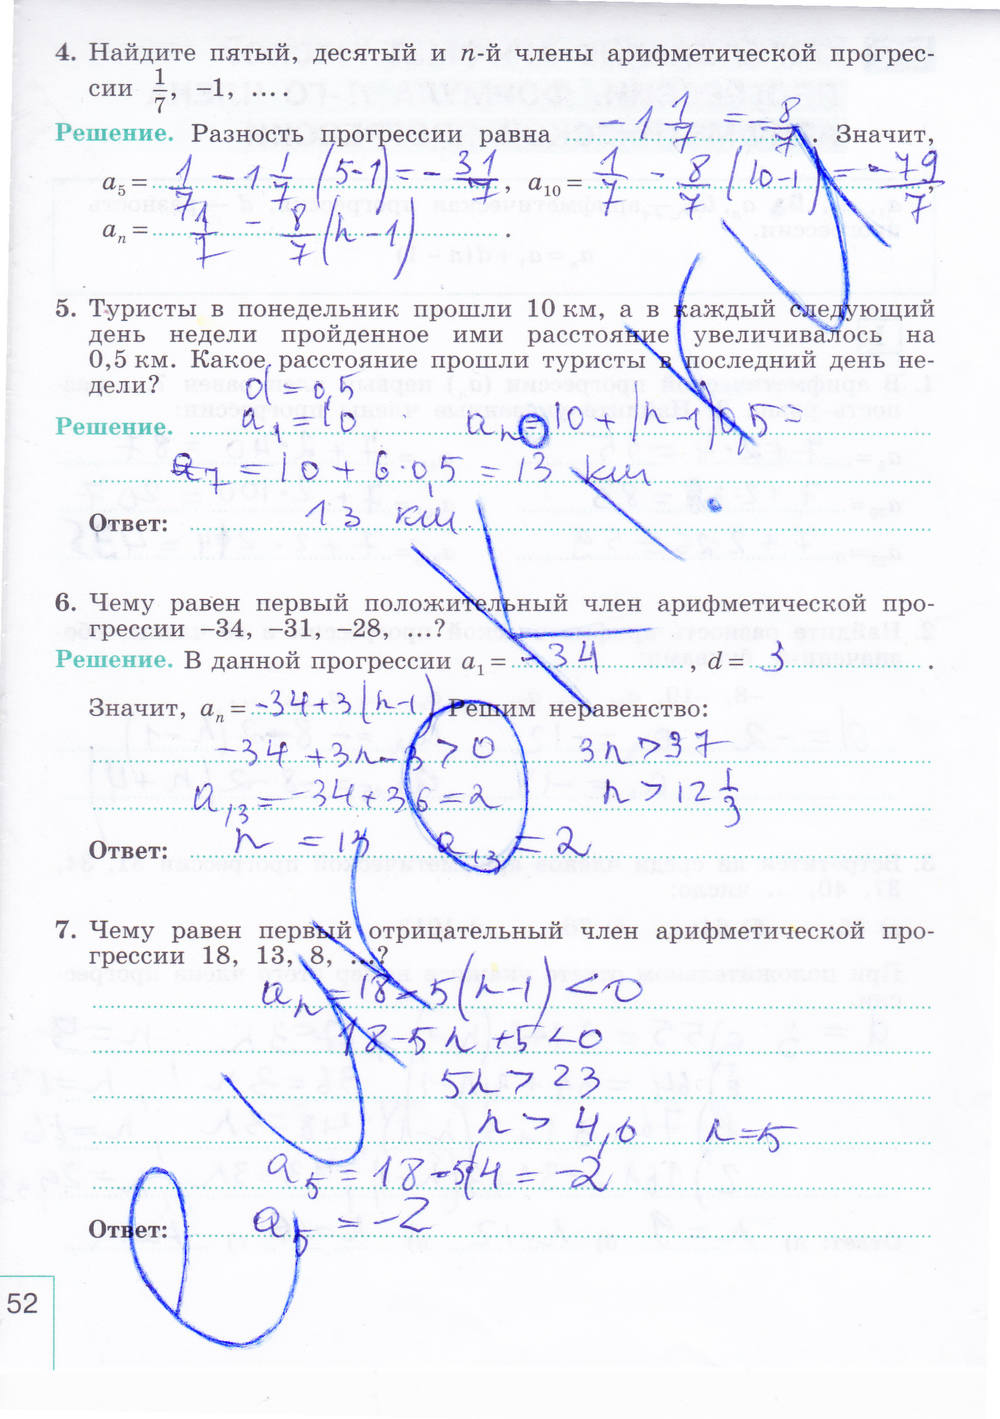 4. Найдите пятый, десятый и n-й члены арифметической прогрес-
сии 1/7, −1, ... .
Решение. Разность прогрессии равна −1 1/7 = −8/7. Значит,
a5 = 1/7 − 1 1/7 (5−1) = −31/7, a10 = 1/7 − 8/7 (10−1) = −79/7,
an = 1/7 − 8/7 (n−1).
5. Туристы в понедельник прошли 10 км, а в каждый следующий
день недели пройденное ими расстояние увеличивалось на
0,5 км. Какое расстояние прошли туристы в последний день не-
дели?
d = 0,5
Решение. a1 = 10 an = 10 + (n−1)0,5 =
a7 = 10 + 6·0,5 = 13 км
Ответ: 13 км
6. Чему равен первый положительный член арифметической про-
грессии −34, −31, −28, ...?
Решение. В данной прогрессии a1 = −34, d = 3.
Значит, an = −34+3(n−1) Решим неравенство:
−34 + 3n − 3 > 0 3n > 37
a13 = −34 + 36 = 2 n > 12 1/3
Ответ: n = 13 a13 = 2
7. Чему равен первый отрицательный член арифметической про-
грессии 18, 13, 8, ...?
an = 18 − 5(n−1) < 0
18 − 5n + 5 < 0
5n > 23
n > 4,6 n = 5
a5 = 18 − 5·4 = −2
Ответ: a5 = −2
52